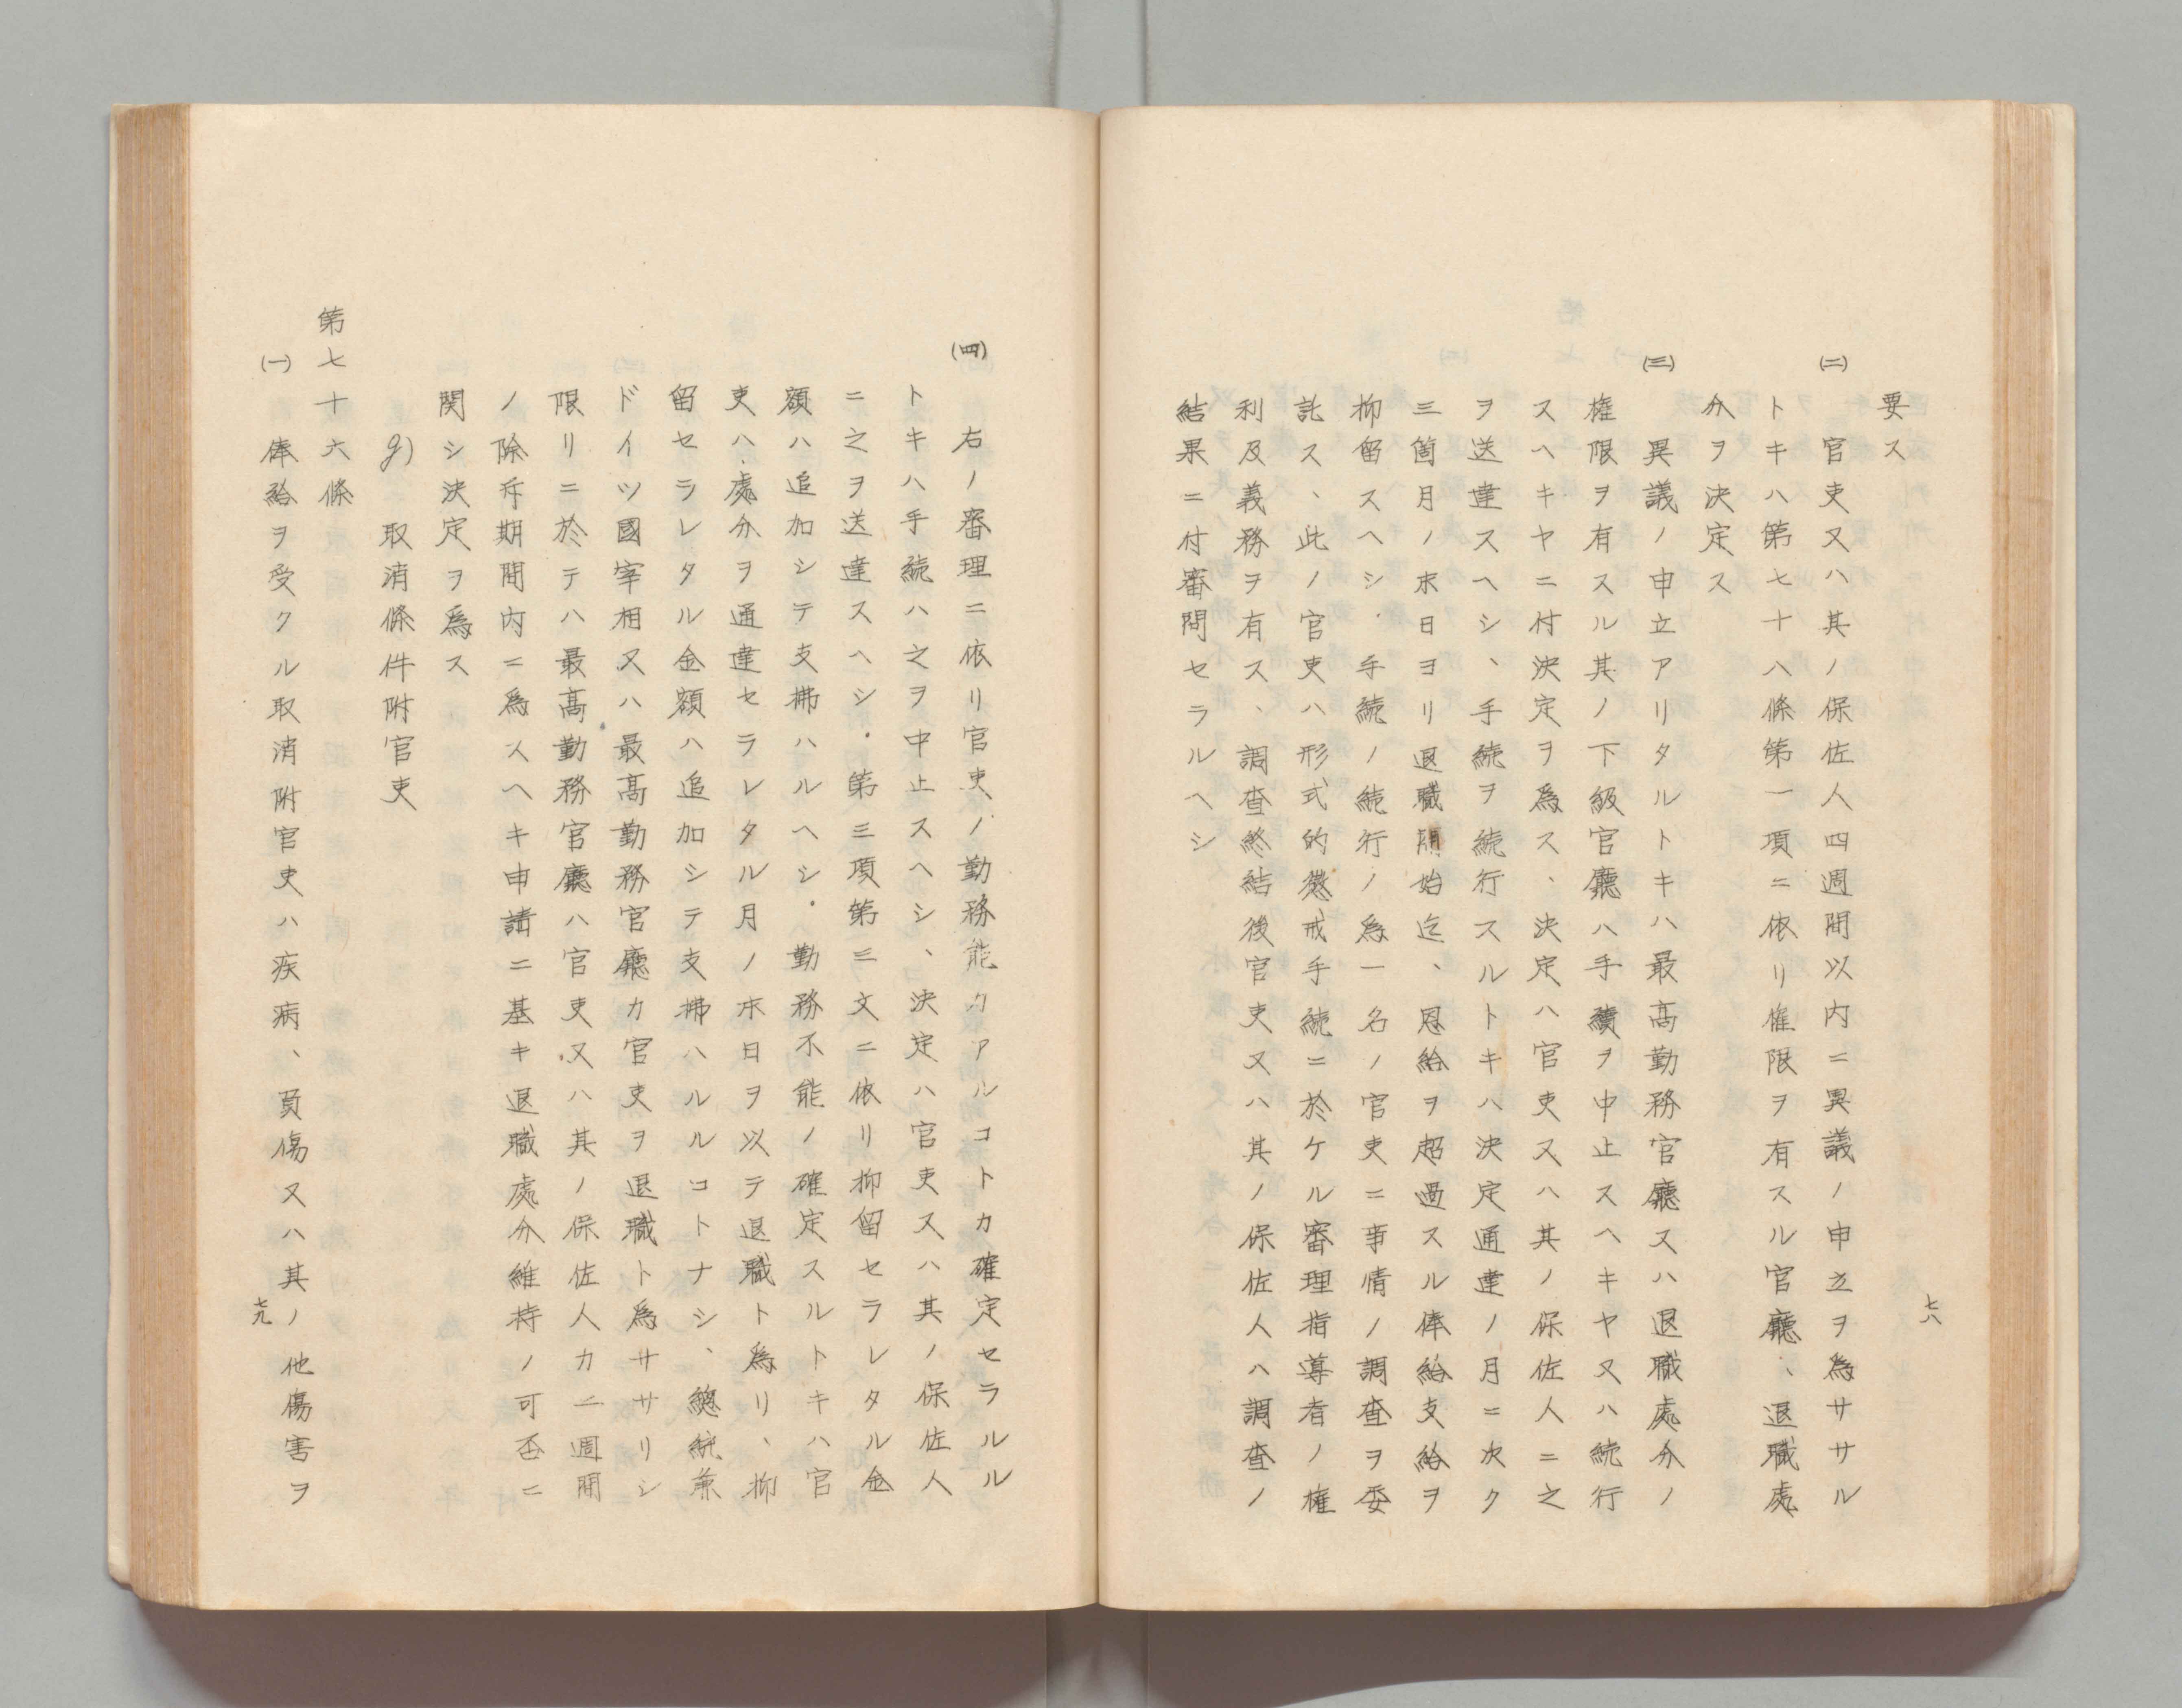 七八
要ス
(二) 官吏又ハ其ノ保佐人四週間以内ニ異議ノ申立ヲ為ササル
トキハ第七十八條第一項ニ依リ権限ヲ有スル官廳、退職處
分ヲ決定ス
(三) 異議ノ申立アリタルトキハ最高勤務官廳又ハ退職處分ノ
権限ヲ有スル其ノ下級官廳ハ手續ヲ中止スヘキヤ又ハ続行
スヘキヤニ付決定ヲ為ス、決定ハ官吏又ハ其ノ保佐人ニ之
ヲ送達スヘシ、手続ヲ続行スルトキハ決定通達ノ月ニ次ク
三箇月ノ末日ヨリ退職開始迄、恩給ヲ超過スル俸給支給ヲ
抑留スヘシ.手続ノ続行ノ為一名ノ官吏ニ事情ノ調査ヲ委
託ス、此ノ官吏ハ形式的懲戒手続ニ於ケル審理指導者ノ権
利及義務ヲ有ス、調査終結後官吏又ハ其ノ保佐人ハ調査ノ
結果ニ付審問セラルヘシ
(四) 右ノ審理ニ依リ官吏ノ勤務能力アルコトカ確定セラルル
トキハ手続ハ之ヲ中止スヘシ、決定ハ官吏又ハ其ノ保佐人
ニ之ヲ送達スヘシ.第三項第三文ニ依リ抑留セラレタル金
額ハ追加シテ支拂ハルヘシ.勤務不能ノ確定スルトキハ官
吏ハ處分ヲ通達セラレタル月ノ末日ヲ以テ退職ト為リ、抑
留セラレタル金額ハ追加シテ支拂ハルルコトナシ、總統兼
ドイツ國宰相又ハ最高勤務官廳カ官吏ヲ退職ト為ササリシ
限リニ於テハ最高勤務官廳ハ官吏又ハ其ノ保佐人カ二週間
ノ除斥期間内ニ為スヘキ申請ニ基キ退職處分維持ノ可否ニ
関シ決定ヲ為ス
g) 取消條件附官吏
第七十六條
(一) 俸給ヲ受クル取消附官吏ハ疾病、負傷又ハ其ノ他傷害ヲ
七九